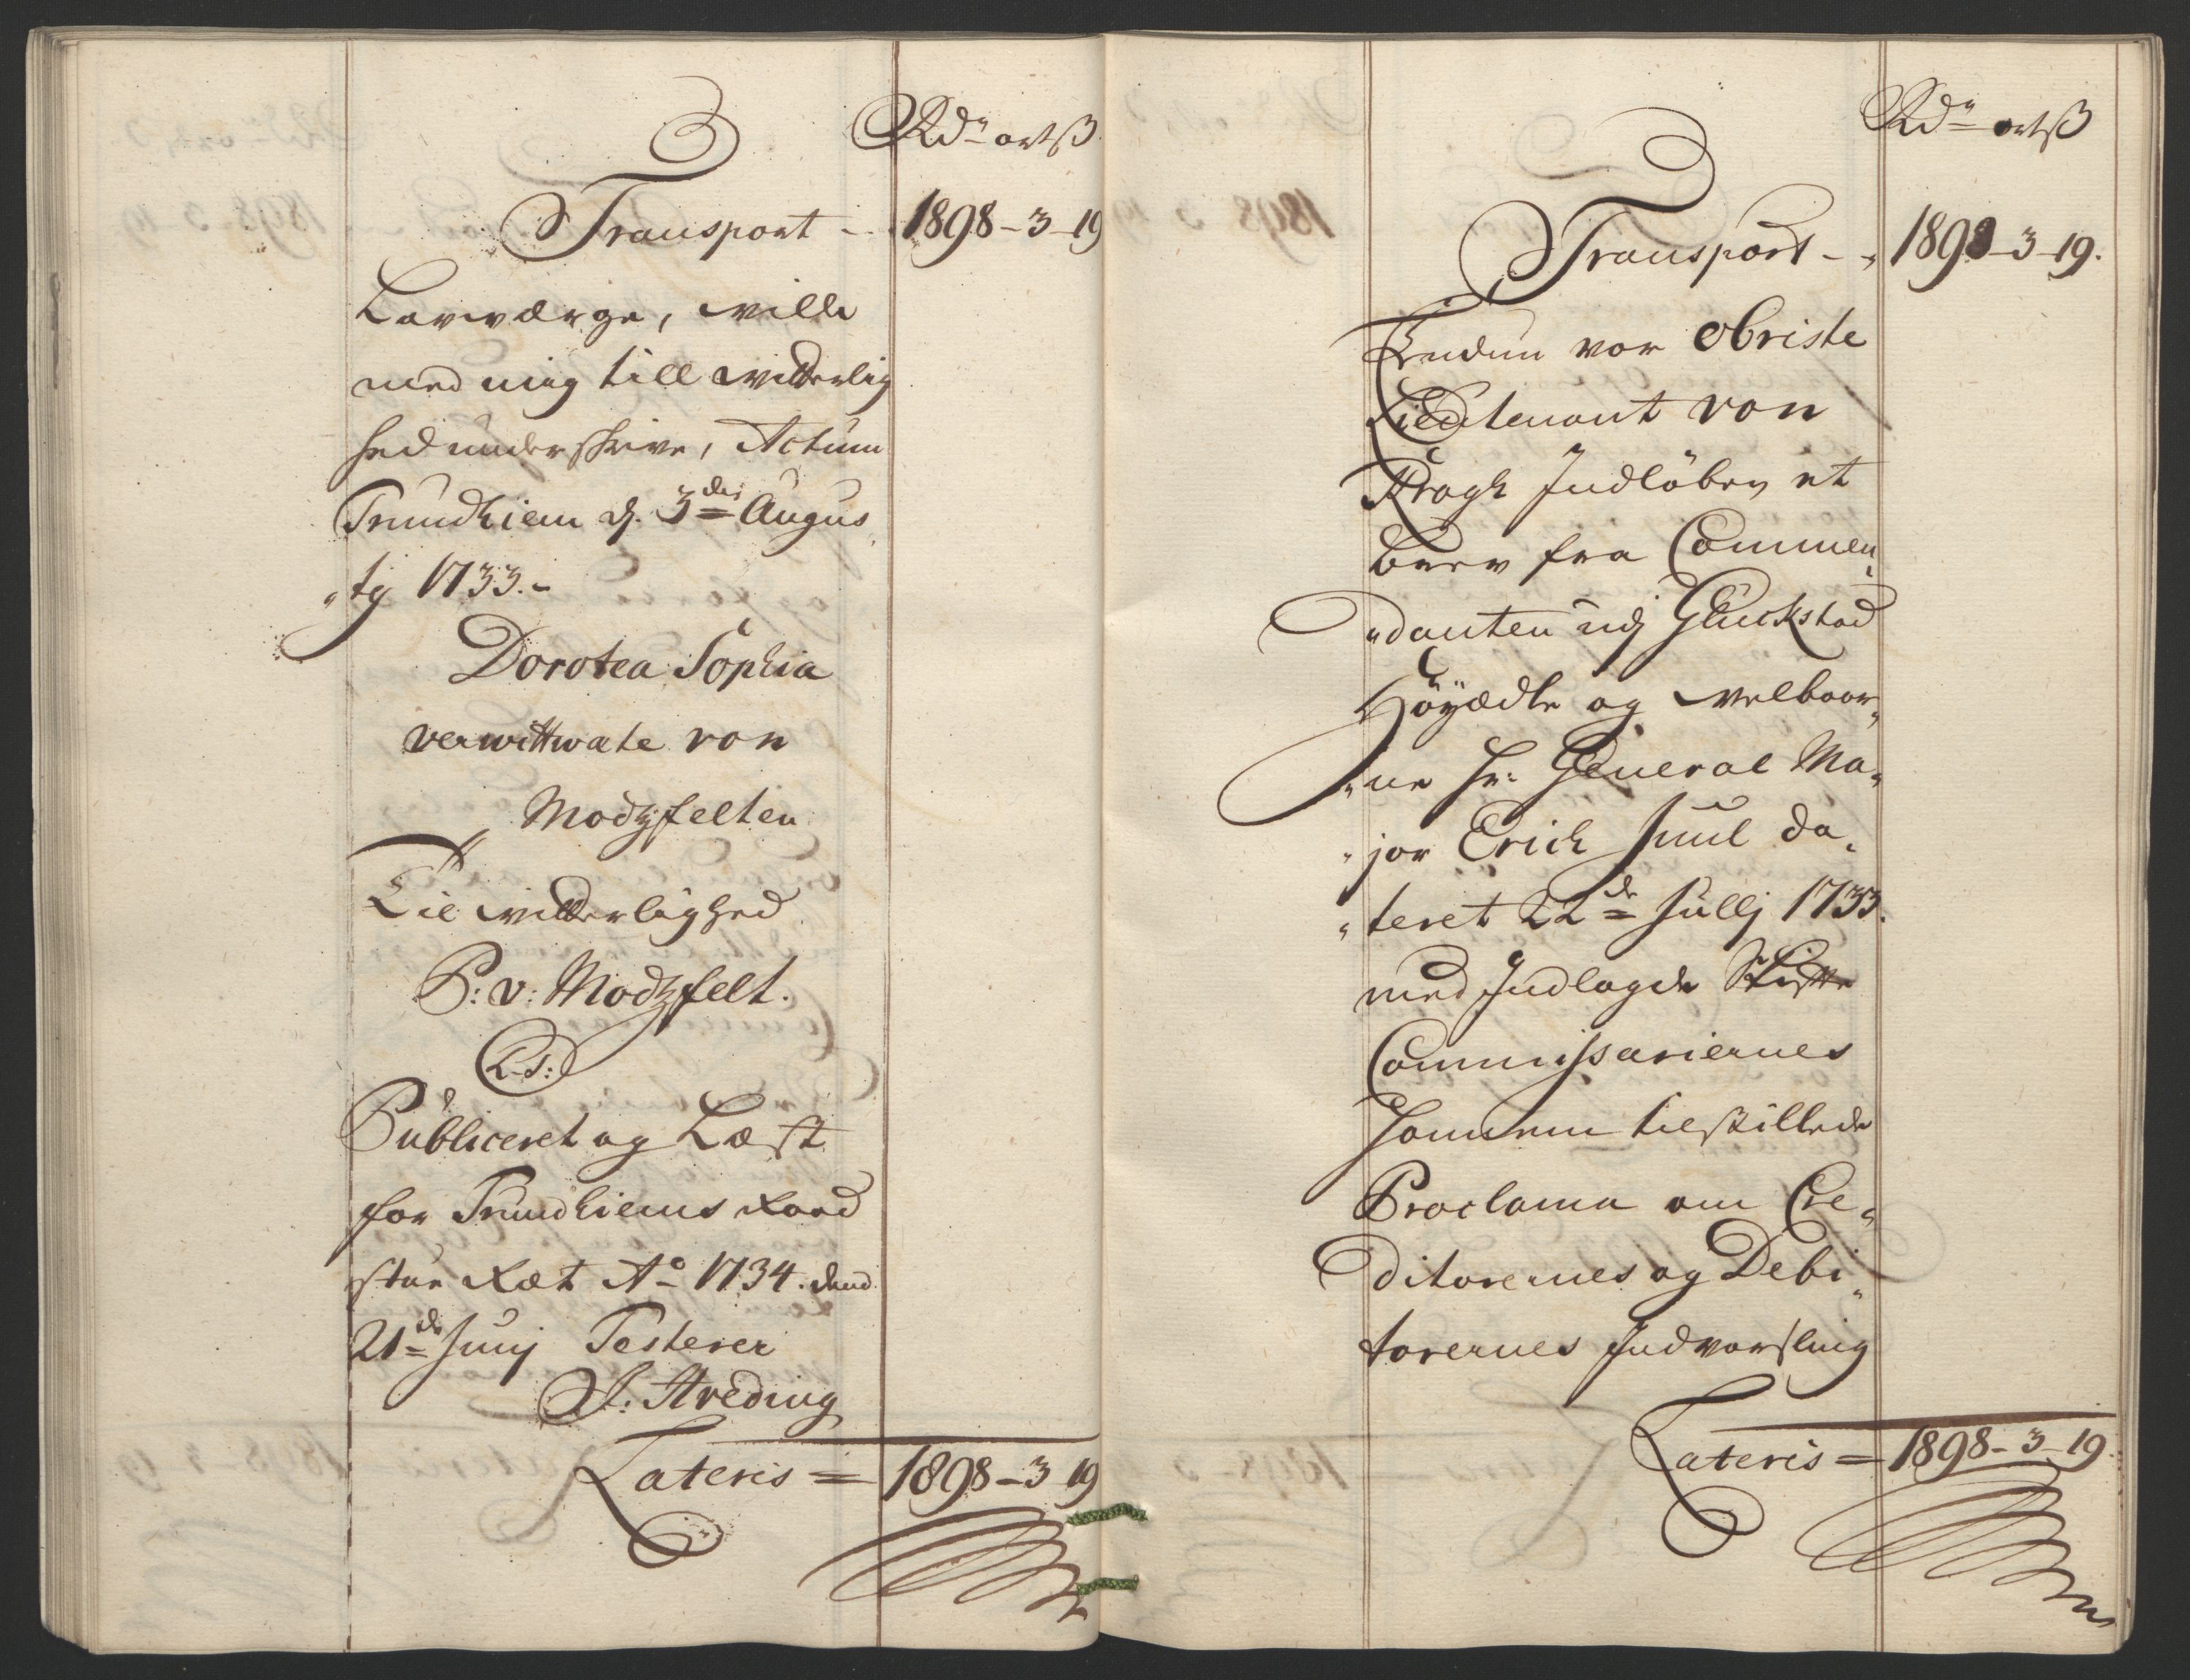 Rdr ort ß
Transport - 1898 - 3 - 19
Lavværge, wille
med mig till witterlig
hed underskrive, Actum
Trundhiem d. 3die Augus„
„tij 1733. -
Dorotea Sophia
verwittwate von
Modzfelten
Til witterlighed
P: v: Modzfelt.
L.S:
Publiceret og Læst
for Trundhiems Raad
stue Ræt Ao 1734. dend
21de Junij Testerer
S: Areding
Lateris = 1898 - 3 19
Rdr ort ß
Transport - „ 1898 - 3 - 19.
Endnu var Obriste
Lieutenant von
Kragh Indløben et
brev fra Commen„
„danten udj Glückstad
Høyædle og welbaar„
„ne Hr: General Ma„
„jor Erich Juul da„
„teret 22de Jullj 1733.
med Indlagde Skifte
Commissariernes
Hannem tilstillede
Proclama om Cre„
ditorernes og Debi„
torernes Indvarsling
Lateris = 1898 - 3 - 19.